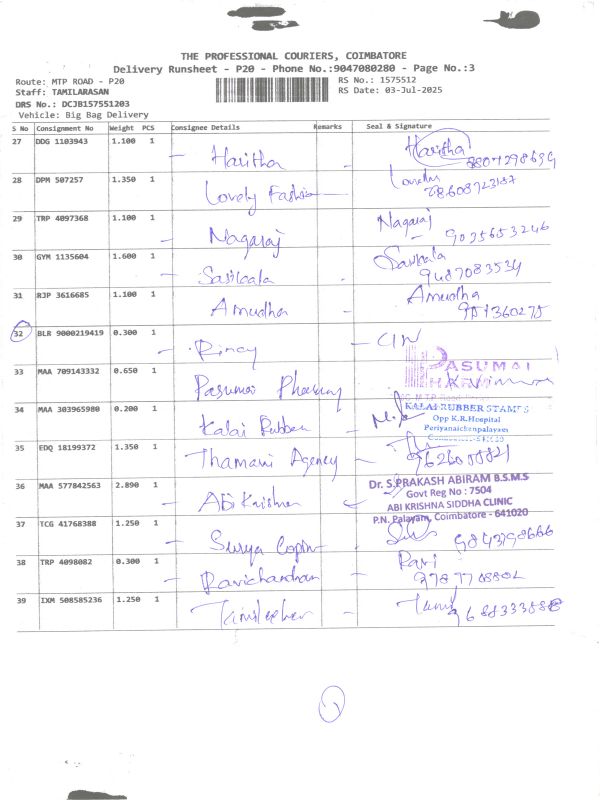 THE PROFESSIONAL COURIERS, COIMBATORE
Delivery Runsheet - P20 - Phone No.:9047080280 - Page No.:3
Route: MTP ROAD - P20 RS No.: 1575512
Staff: TAMILARASAN RS Date: 03-Jul-2025
DRS No.: DCJB157551203
Vehicle: Big Bag Delivery
S No Consignment No Weight PCS Consignee Details Remarks Seal & Signature
27 DDG 1103943 1.100 1 Haritha Haritha
28 DPM 507257 1.350 1 Lovely Fashion
29 TRP 4097368 1.100 1 Nagaraj Nagaraj
9025653246
30 GYM 1135604 1.600 1 Sasikala Sasikala
9487083534
31 RJP 3616685 1.100 1 Amudha Amudha
32 BLR 9000219419 0.300 1 Rincy
33 MAA 709143332 0.650 1 Pasumai PASUMAI
34 MAA 303965980 0.200 1 Kalai Rubber KALAI RUBBER STAMPS
Opp K.R.Hospital
Periyanaickenpalayam
35 EDQ 18199372 1.350 1 Thamani Agency
36 MAA 577842563 2.890 1 Abi Krishna Dr. S.PRAKASH ABIRAM B.S.M.S
Govt Reg No : 7504
ABI KRISHNA SIDDHA CLINIC
P.N. Palayam, Coimbatore - 641020
37 TCG 41768388 1.250 1 Surya
38 TRP 4098082 0.300 1 Ravichandran Ravi
39 IXM 508585236 1.250 1